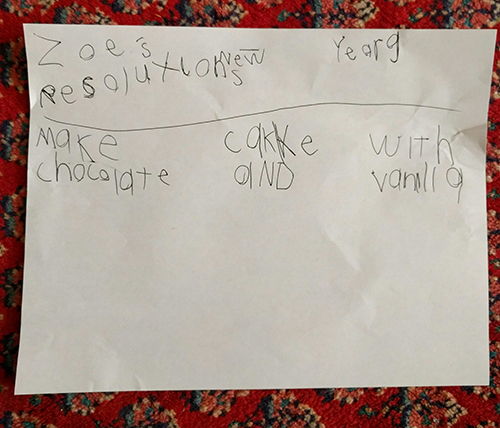 Zoe's new Years
Resolutions
Make cakke with
chocolate and vanilla